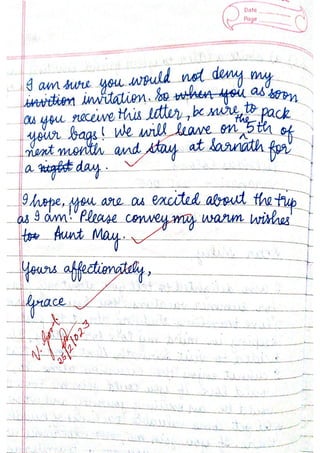 Date
Page
I am sure you would not deny my
invition invitation. So when you as soon
as you receive this letter, be sure to pack
your bags! We will leave on the 5th of
next month and stay at Sarnath for
a night day.
I hope, you are as excited about the trip
as I am! Please convey my warm wishes
to Aunt May.
Yours affectionately,
Grace
V. Good